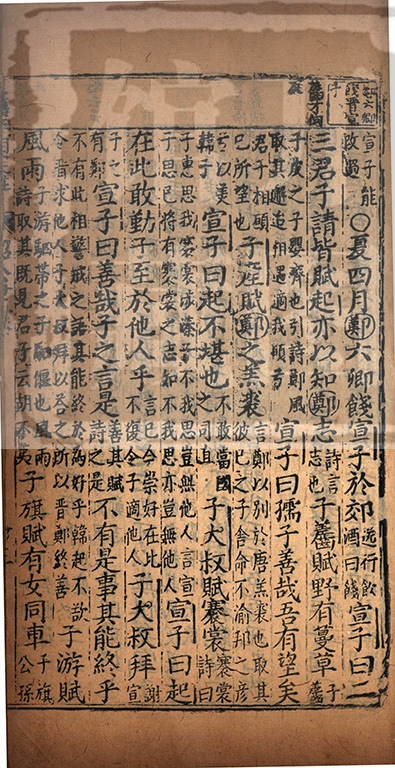 鄭六卿
餞晉宣
子
宣子能改過〇夏四月鄭六卿餞宣子於郊送行飲酒曰餞宣子曰二
三君子請皆賦起亦以知鄭志詩言志也子齹賦野有蔓草齹子
子皮之子嬰齊也引詩鄭風取其邂逅相遇適我願兮宣子曰孺子善哉吾有望矣
君子相願己所望也子產賦鄭之羔裘言鄭以別於唐羔裘也取其彼己之子舍命不渝邦之彥
兮以美韓子宣子曰起不堪也不敢當國之司直子大叔賦褰裳詩曰褰裳
子惠思我褰裳涉溱子不我思豈無他人言宣子思己將有褰裳之志如不我思亦豈無他人宣子曰起
在此敢勤子至於他人乎言己今崇好在此不復令子適他人子大叔拜謝宣
子之有鄭宣子曰善哉子之言是善其賦詩之是不有是事其能終乎
不有此相警戒之語其能終於為好乎韓起不欲令晉求他人子大叔拜以荅之所以晉鄭終善子游賦
風雨子游駟帶之子駟偃也風雨詩取其既見君子云胡不夷子旗賦有女同車子旗公孫